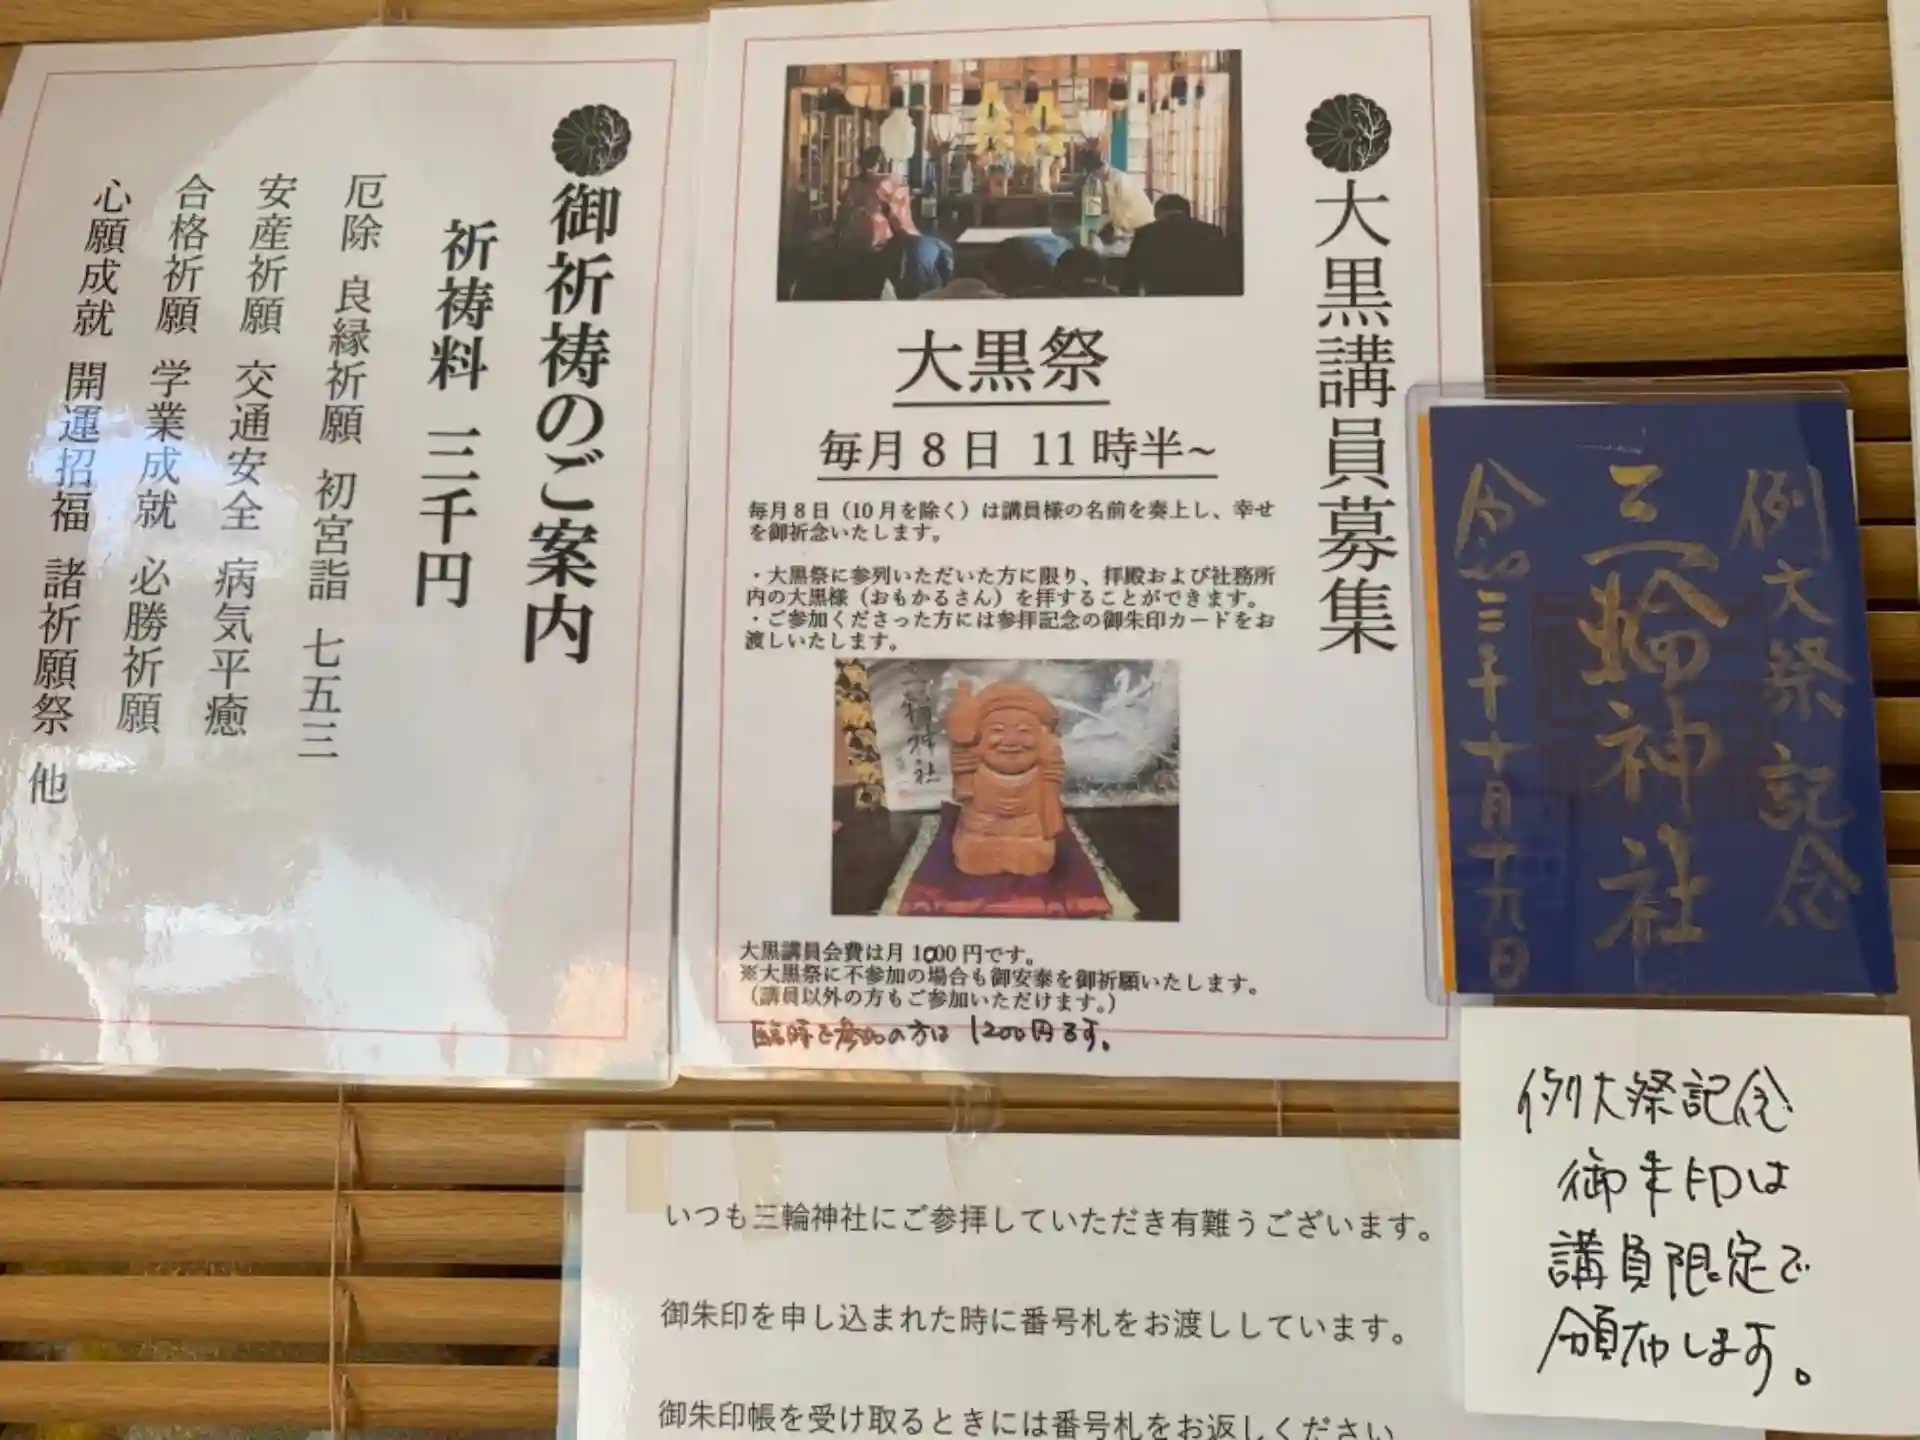 御祈祷のご案内
祈祷料 三千円
厄除 良縁祈願 初宮詣 七五三
安産祈願 交通安全 病気平癒
合格祈願 学業成就 必勝祈願
心願成就 開運招福 諸祈願祭 他
大黒講員募集
大黒祭
毎月8日 11時半~
毎月8日（10月を除く）は講員様の名前を奏上し、幸せ
を御祈念いたします。
・大黒祭に参列いただいた方に限り、拝殿および社務所
内の大黒様（おもかるさん）を拝することができます。
・ご参加くださった方には参拝記念の御朱印カードをお
渡しいたします。
三輪神社
大黒講員会費は月1000円です。
※大黒祭に不参加の場合も御安泰を御祈願いたします。
（講員以外の方もご参加いただけます。）
臨時で参加の方は 1200円です。
例大祭記念
三輪神社
令和三年十月十九日
例大祭記念
御朱印は
講員限定で
頒布します。
いつも三輪神社にご参拝していただき有難うございます。
御朱印を申し込まれた時に番号札をお渡ししています。
御朱印帳を受け取るときには番号札をお返しください